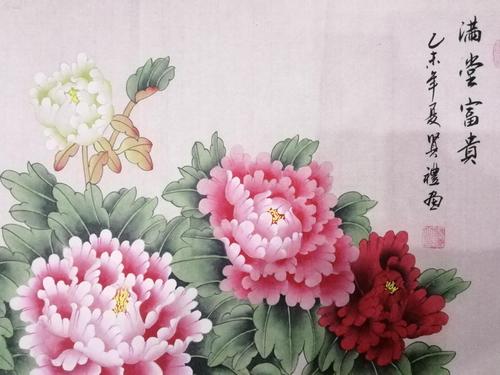 满堂富貴
乙未年夏異禮画